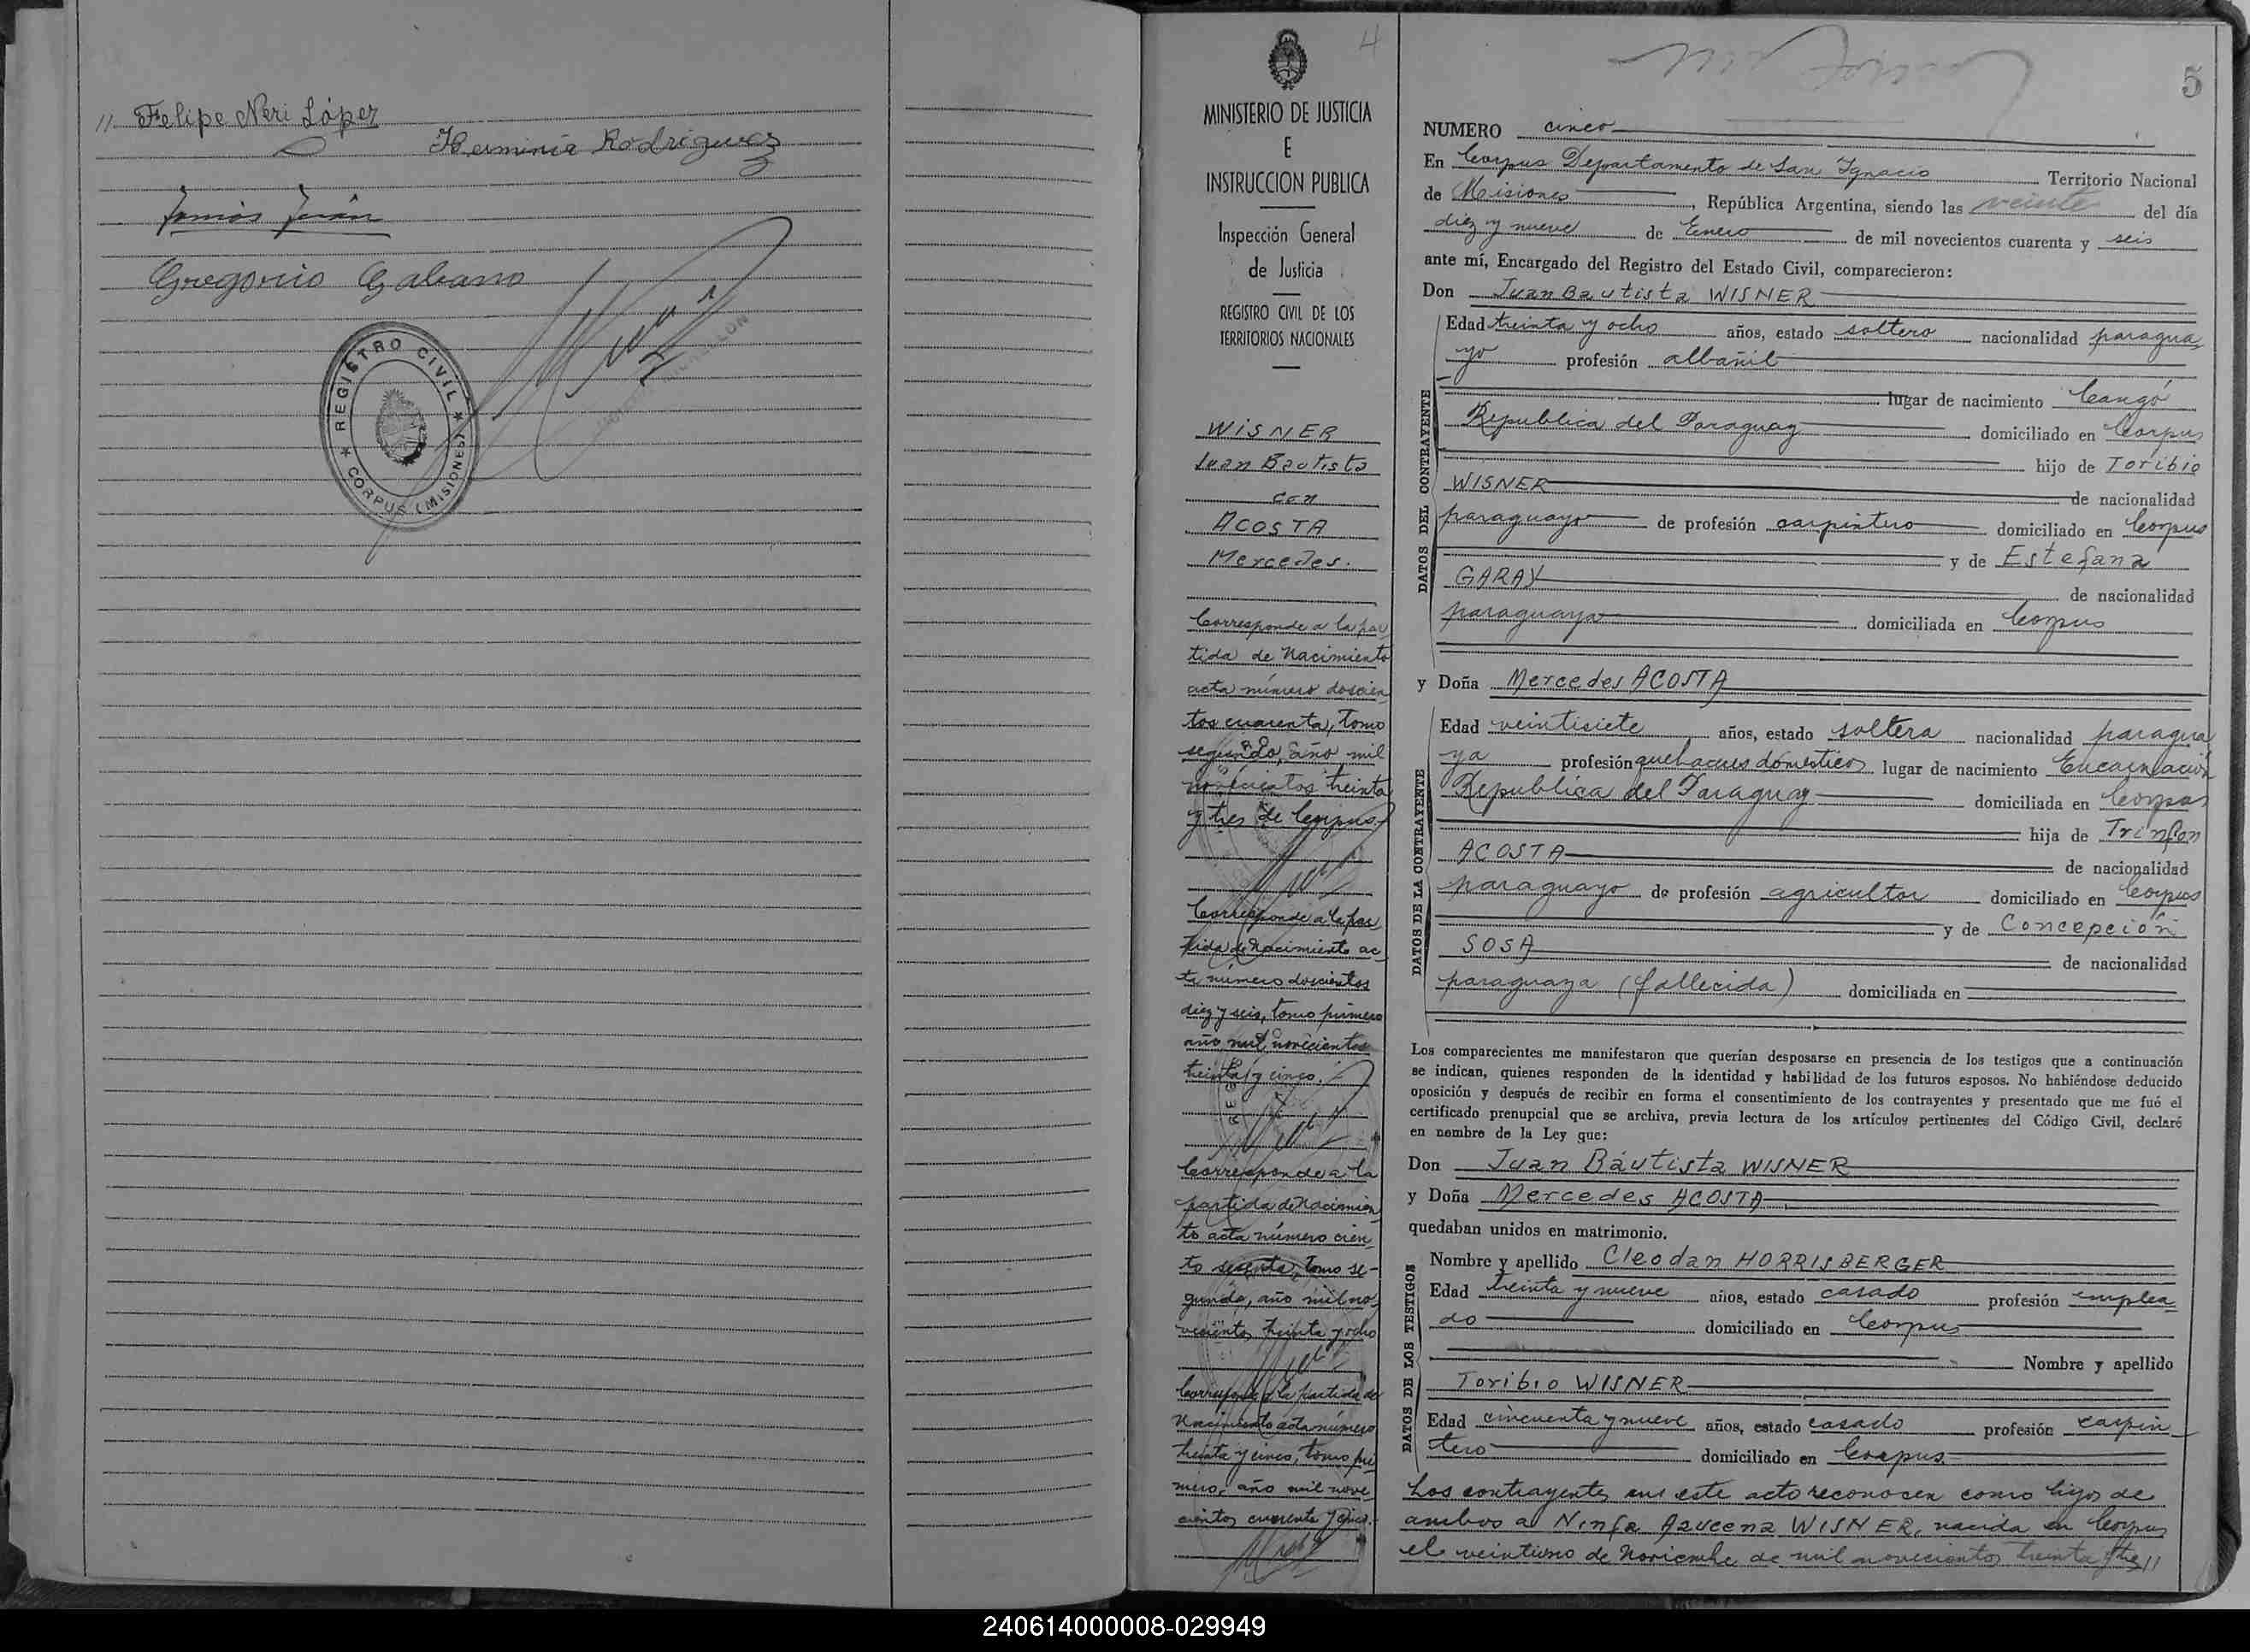 11 Felipe Neri López
Herminia Rodriguez
Tomás
Gregorio Galeano
REGISTRO CIVIL
CORPUS (MISIONES)
4
MINISTERIO DE JUSTICIA
E
INSTRUCCION PUBLICA
Inspección General
de Justicia
REGISTRO CIVIL DE LOS
TERRITORIOS NACIONALES
WISNER
Juan Bautista
con
ACOSTA
Mercedes.
Corresponde a la par
tida de Nacimiento
acta número doscien
tos cuarenta, tomo
segundo, año mil
novecientos treinta
y tres de Corpus.
Corresponde a la par
tida de Nacimiento ac
ta número doscientos
diez y seis, tomo primero
año mil novecientos
treinta y cinco.
Corresponde a la
partida de Nacimien
to acta número cien
to sesenta, tomo se-
gundo, año mil no
vecientos treinta y ocho
Corresponde a la partida de
Nacimiento acta número
treinta y cinco, tomo pri
mero, año mil nove
cientos cuarenta y cinco.
5
NUMERO cinco
En Corpus Departamento de San Ignacio Territorio Nacional
de Misiones, República Argentina, siendo las veinte del día
diez y nueve de Enero de mil novecientos cuarenta y seis
ante mí, Encargado del Registro del Estado Civil, comparecieron:
Don Juan Bautista WISNER
DATOS DEL CONTRAYENTE
Edad treinta y ocho años, estado soltero nacionalidad paragua
yo profesión albañil
lugar de nacimiento Cangó
Republica del Paraguay domiciliado en Corpus
hijo de Toribio
WISNER de nacionalidad
paraguayo de profesión carpintero domiciliado en Corpus
y de Estefana
GARAY de nacionalidad
paraguaya domiciliada en Corpus
y Doña Mercedes ACOSTA
DATOS DE LA CONTRAYENTE
Edad veintisiete años, estado soltera nacionalidad paragua
ya profesión quehaceres domésticos lugar de nacimiento Encarnación
Republica del Paraguay domiciliada en Corpus
hija de
ACOSTA de nacionalidad
paraguayo de profesión agricultor domiciliado en Corpus
y de Concepción
SOSA de nacionalidad
paraguaya (fallecida) domiciliada en
Los comparecientes me manifestaron que querían desposarse en presencia de los testigos que a continuación
se indican, quienes responden de la identidad y habilidad de los futuros esposos. No habiéndose deducido
oposición y después de recibir en forma el consentimiento de los contrayentes y presentado que me fué el
certificado prenupcial que se archiva, previa lectura de los artículos pertinentes del Código Civil, declaré
en nombre de la Ley que:
Don Juan Bautista WISNER
y Doña Mercedes ACOSTA
quedaban unidos en matrimonio.
DATOS DE LOS TESTIGOS
Nombre y apellido Cleodan HORRISBERGER
Edad treinta y nueve años, estado casado profesión emplea
do domiciliado en Corpus
Nombre y apellido
Toribio WISNER
Edad cincuenta y nueve años, estado casado profesión carpin
tero domiciliado en Corpus
Los contrayentes en este acto reconocen como hijos de
ambos a Ninfa Azucena WISNER, nacida en Corpus
el veintiuno de Noviembre de mil novecientos treinta y tres //
240614000008-029949